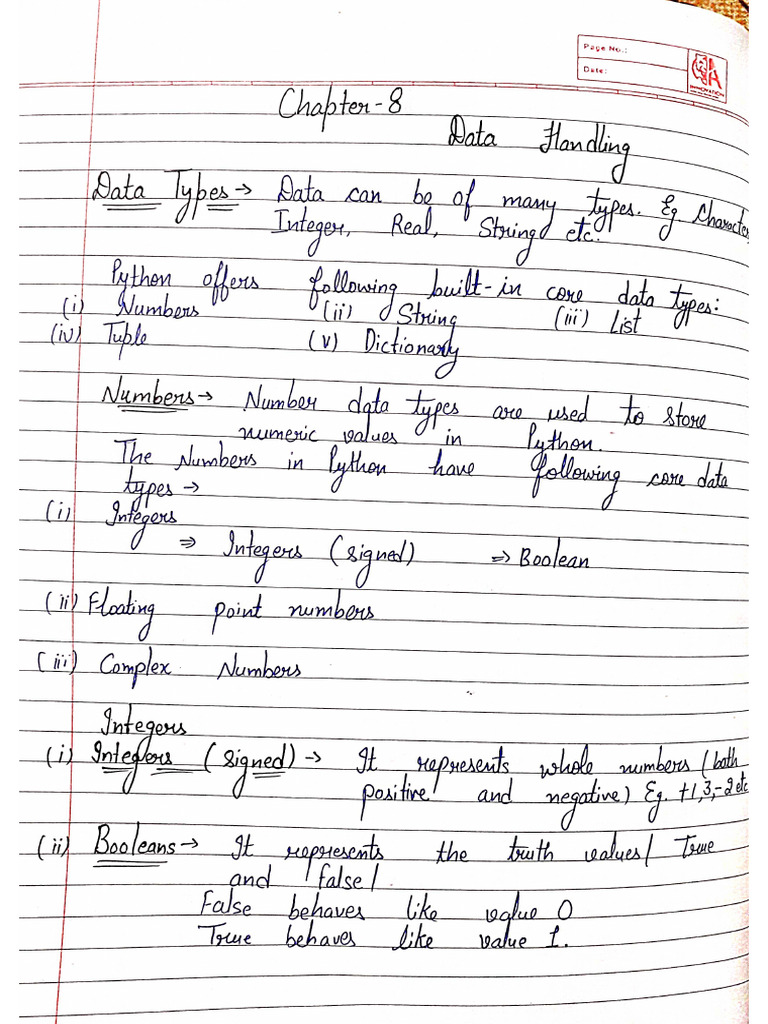 Page No.:
Date:
INNOVATION
Chapter-8
Data Handling
Data Types → Data can be of many types. Eg Character,
Integer, Real, String etc.
Python offers following built-in core data types:
(i) Numbers (ii) String (iii) List
(iv) Tuple (v) Dictionary
Numbers → Number data types are used to store
numeric values in Python.
The Numbers in Python have following core data
types →
(i) Integers
⇒ Integers (signed) ⇒ Boolean
(ii) Floating point numbers
(iii) Complex Numbers
Integers
(i) Integers (signed) → It represents whole numbers (both
positive and negative) Eg. +1,3,-2 etc
(ii) Booleans → It represents the truth values/ True
and false/.
False behaves like value 0
True behaves like value 1.